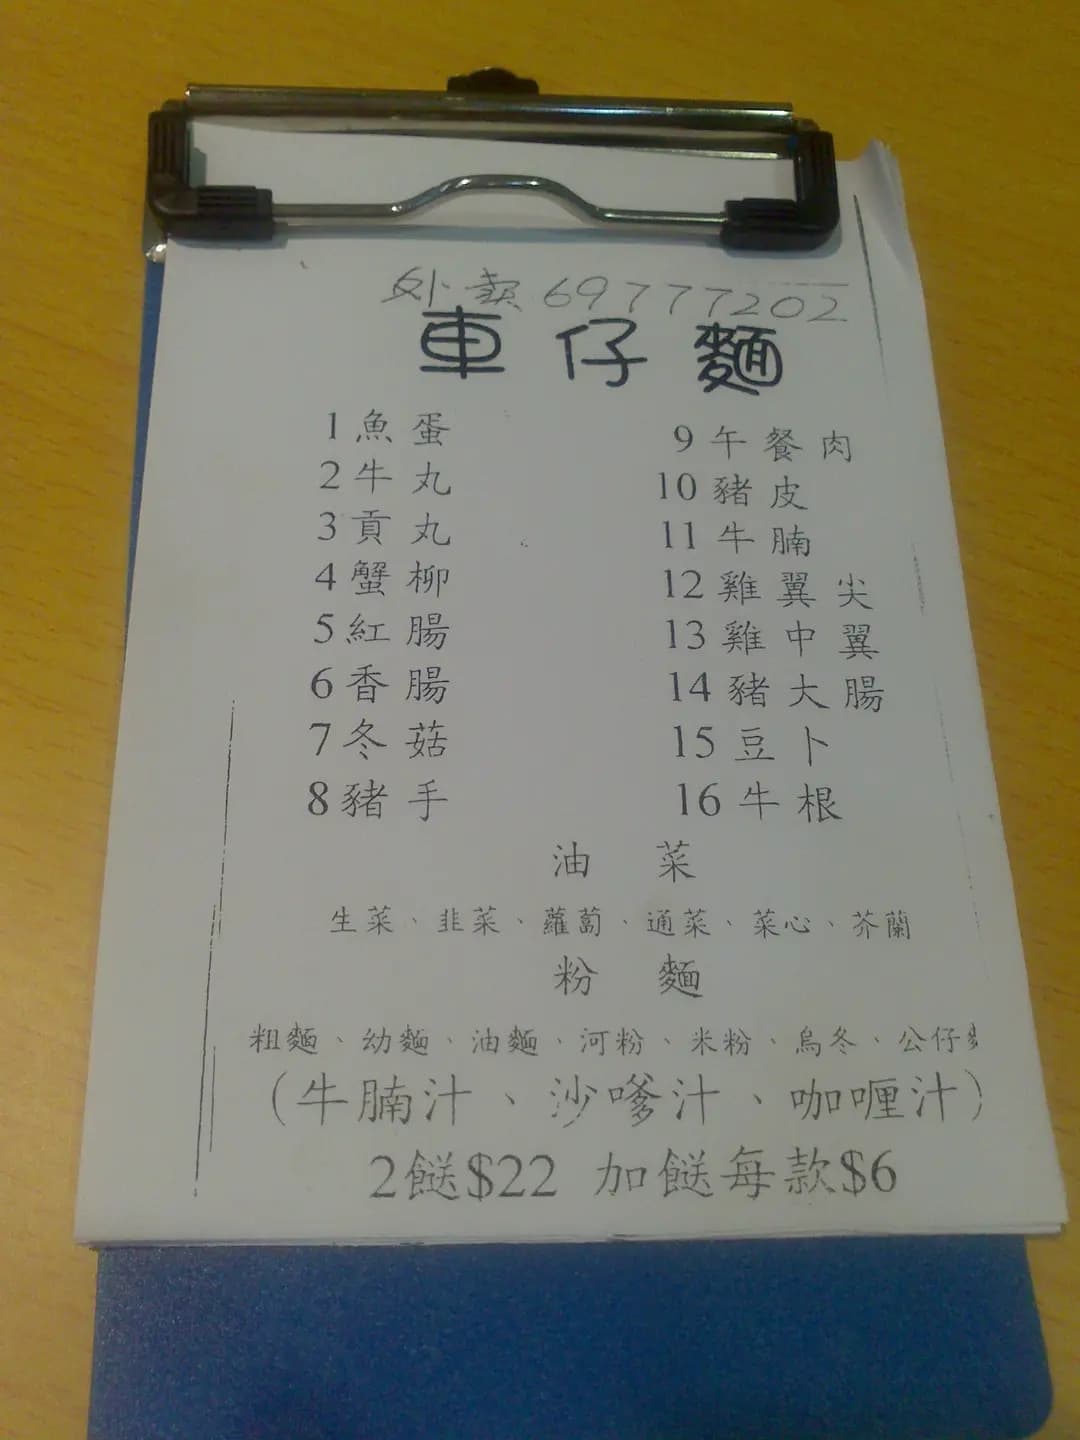 外卖 69777202
車仔麵
1 魚蛋
2 牛丸
3 貢丸
4 蟹柳
5 紅腸
6 香腸
7 冬菇
8 豬手
9 午餐肉
10 豬皮
11 牛腩
12 雞翼尖
13 雞中翼
14 豬大腸
15 豆卜
16 牛根
油菜
生菜、韭菜、蘿蔔、通菜、菜心、芥蘭
粉麵
粗麵、幼麵、油麵、河粉、米粉、烏冬、公仔
(牛腩汁、沙嗲汁、咖喱汁)
2餸$22 加餸每款$6